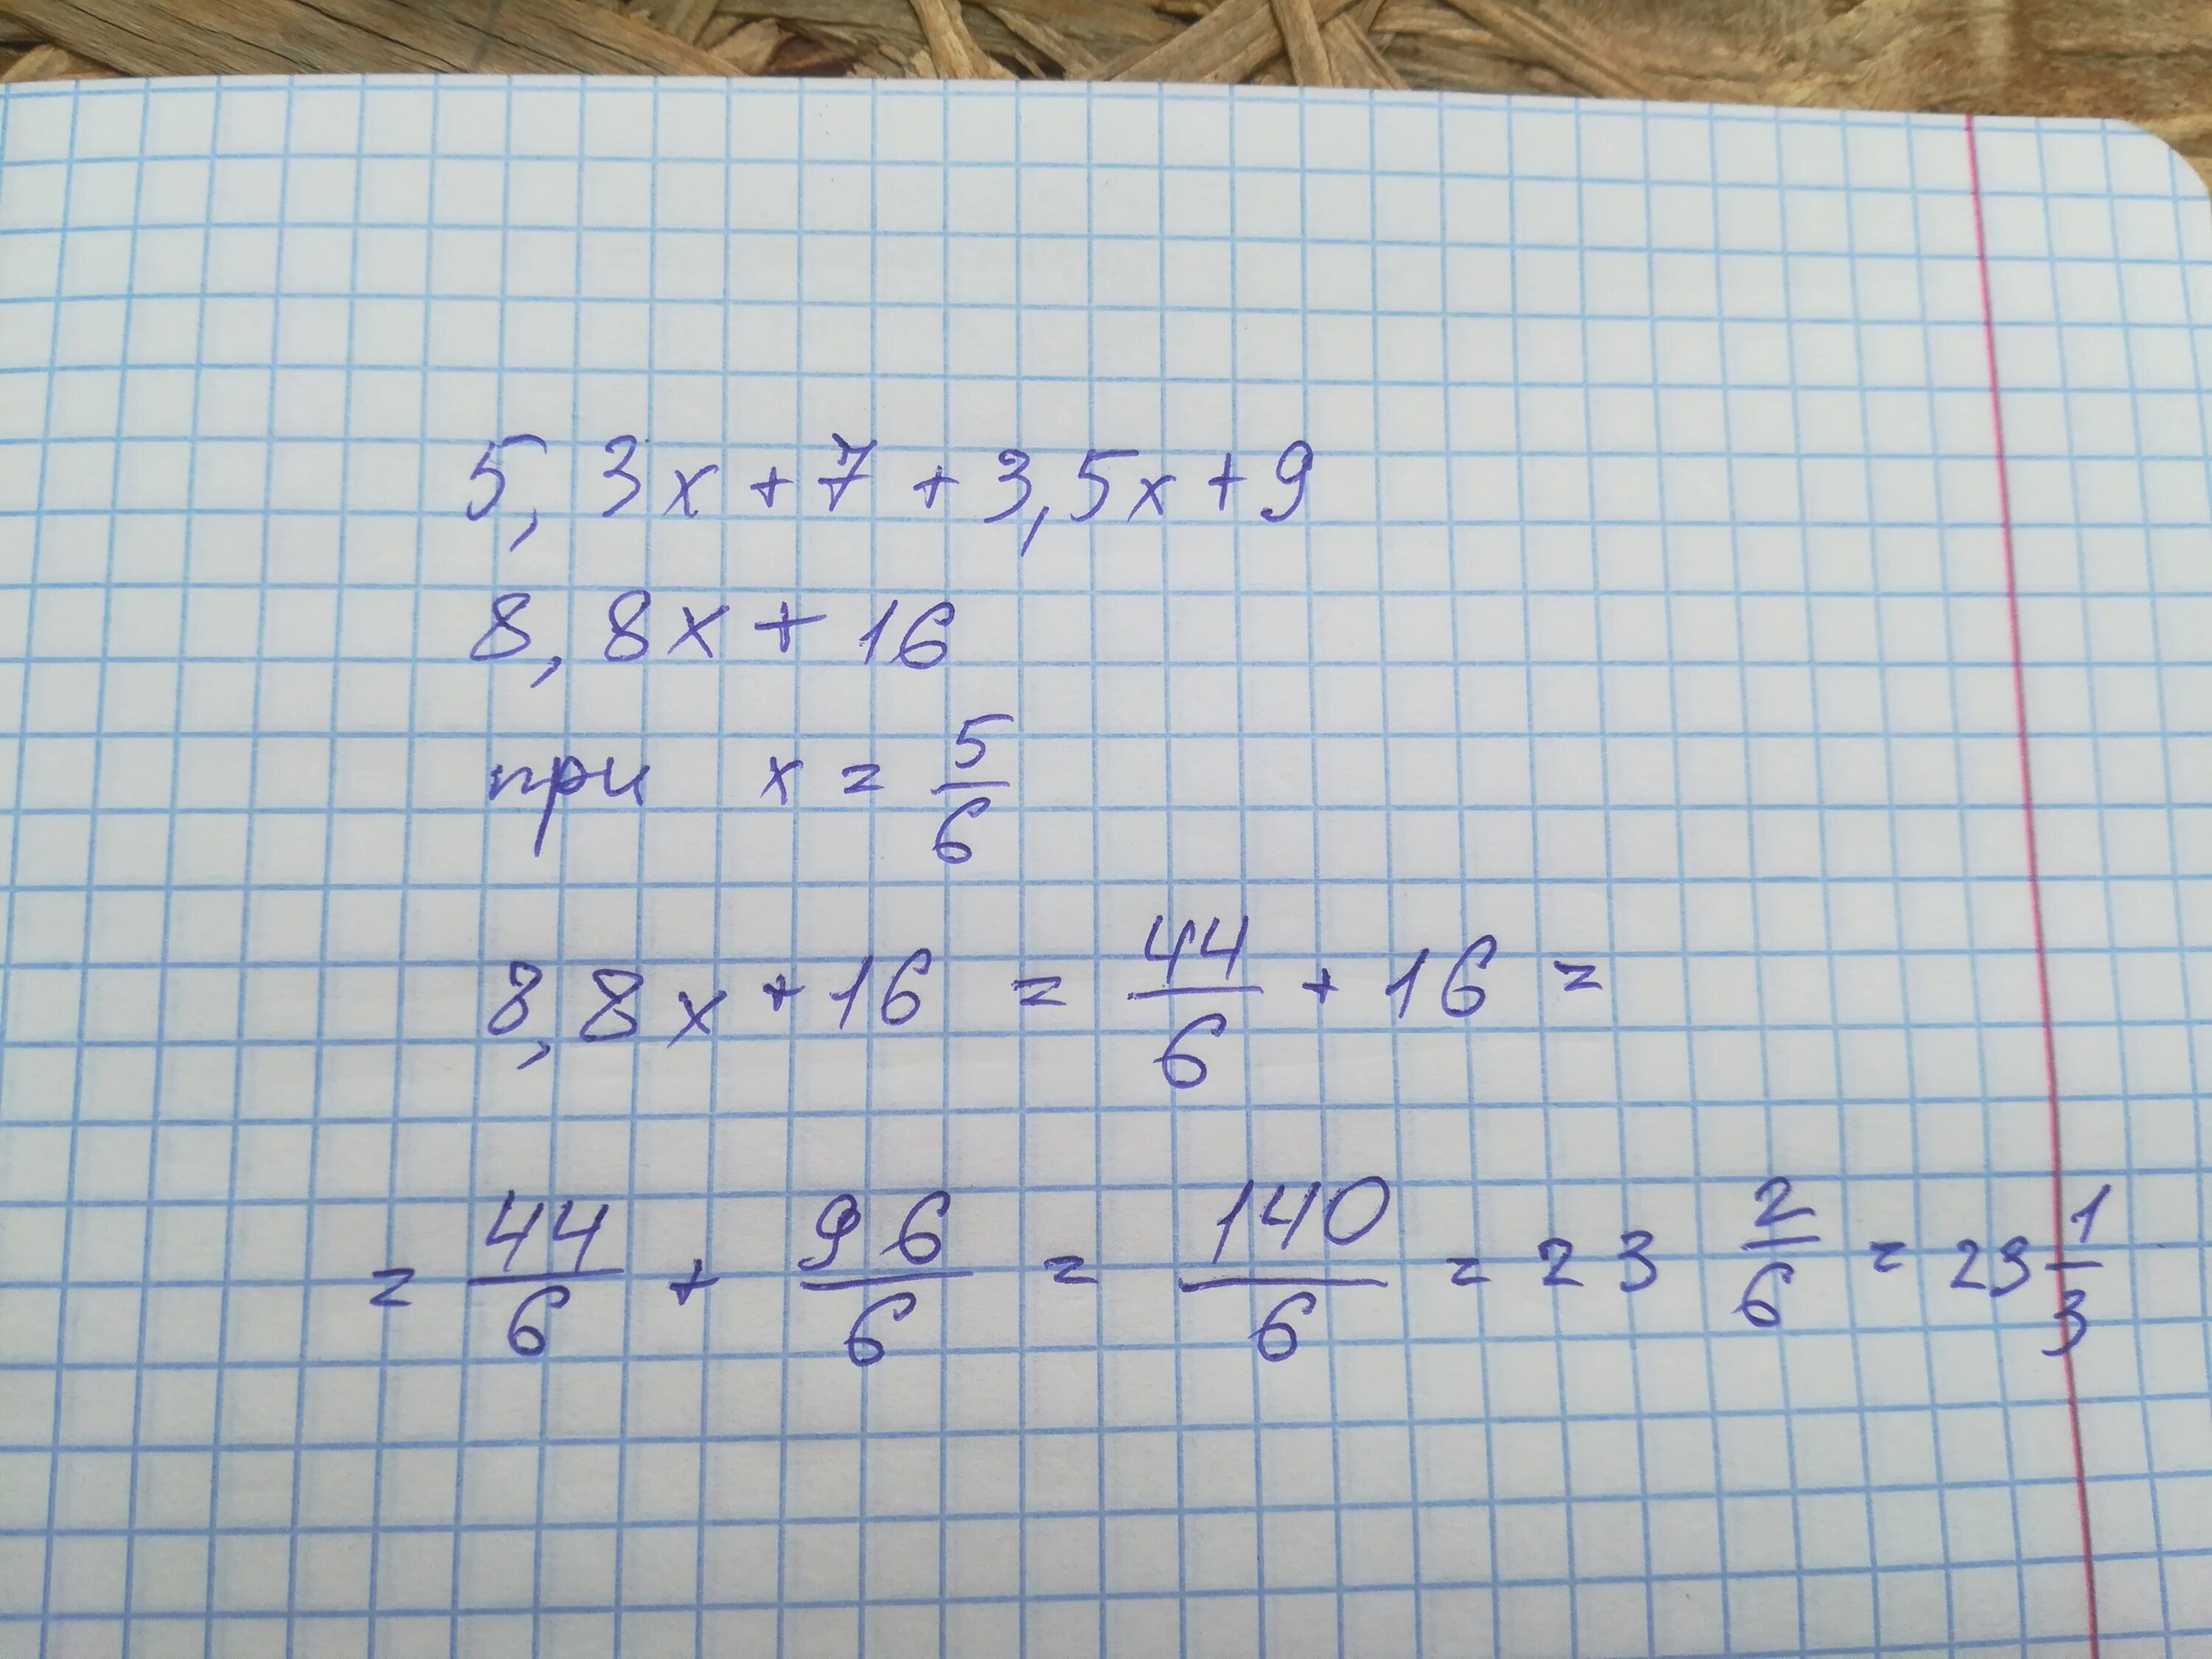 5,3x+7+3,5x+9
8,8x+16
при x = 5/6
8,8x+16 = 44/6 + 16 =
= 44/6 + 96/6 = 140/6 = 23 2/6 = 23 1/3